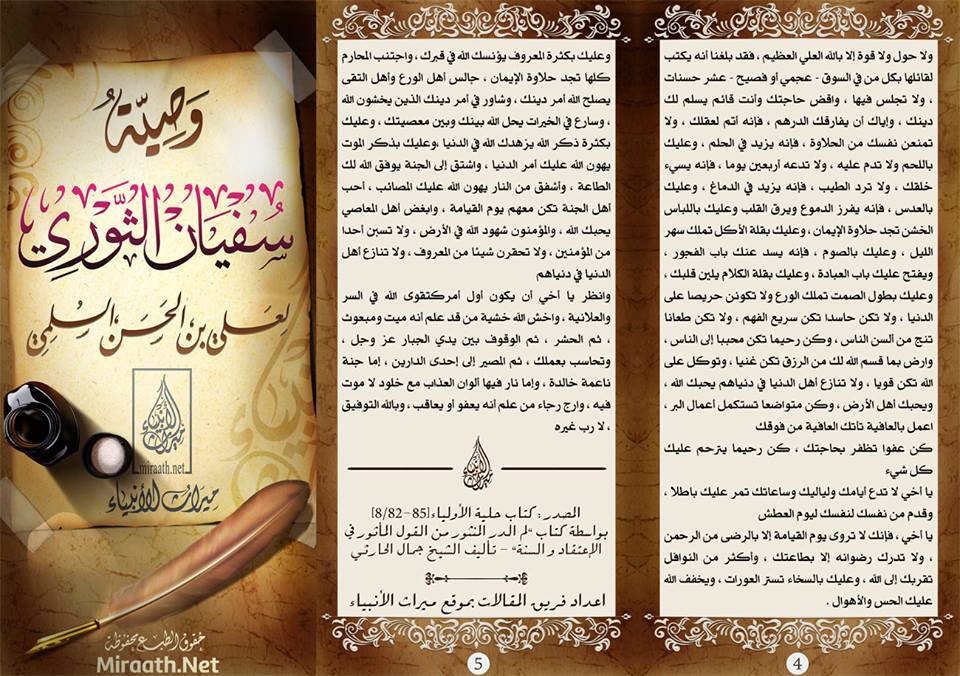 ولا حول ولا قوة إلا بالله العلي العظيم ، فقد بلغنا أنه يكتب
لقائلها بكل من في السوق - عجمي أو فصيح - عشر حسنات
، ولا تجلس فيها ، واقض حاجتك وأنت قائم يسلم لك
دينك ، وإياك أن يفارقك الدرهم ، فإنه أتم لعقلك ، ولا
تمنعن نفسك من الحلاوة ، فإنه يزيد في الحلم ، وعليك
باللحم ولا تدم عليه ، ولا تدعه أربعين يوما ، فإنه يسيء
خلقك ، ولا ترد الطيب ، فإنه يزيد في الدماغ ، وعليك
بالعدس ، فإنه يغزر الدموع ويرق القلب وعليك باللباس
الخشن تجد حلاوة الإيمان ، وعليك بقلة الأكل تملك سهر
الليل ، وعليك بالصوم ، فإنه يسد عنك باب الفجور ،
ويفتح عليك باب العبادة ، وعليك بقلة الكلام يلين قلبك ،
وعليك بطول الصمت تملك الورع ولا تكونن حريصا على
الدنيا ، ولا تكن حاسدا تكن سريع الفهم ، ولا تكن طعانا
تنج من ألسن الناس ، وكن رحيما تكن محببا إلى الناس ،
وارض بما قسم الله لك من الرزق تكن غنيا ، وتوكل على
الله تكن قويا ، ولا تنازع أهل الدنيا في دنياهم يحبك الله ،
ويحبك أهل الأرض ، وكن متواضعا تستكمل أعمال البر ،
اعمل بالعافية تأتك العافية من فوقك
كن عفوا تظفر بحاجتك ، كن رحيما يترحم عليك
كل شيء
يا أخي لا تدع أيامك ولياليك وساعاتك تمر عليك باطلا ،
وقدم من نفسك لنفسك ليوم العطش
يا أخي ، فإنك لا تروى يوم القيامة إلا بالرضى من الرحمن
، ولا تدرك رضوانه إلا بطاعتك ، وأكثر من النوافل
تقربك إلى الله ، وعليك بالسخاء تستر العورات ، ويخفف الله
عليك الحس والأهوال .
4
وعليك بكثرة المعروف يؤنسك الله في قبرك ، واجتنب المحارم
كلها تجد حلاوة الإيمان ، جالس أهل الورع وأهل التقى
يصلح الله أمر دينك ، وشاور في أمر دينك الذين يخشون الله
، وسارع في الخيرات يحل الله بينك وبين معصيتك ، وعليك
بكثرة ذكر الله يزهدك الله في الدنيا ،وعليك بذكر الموت
يهون الله عليك أمر الدنيا ، واشتق إلى الجنة يوفق الله لك
الطاعة ، وأشفق من النار يهون الله عليك المصائب ، أحب
أهل الجنة تكن معهم يوم القيامة ، وابغض أهل المعاصي
يحبك الله ، والمؤمنون شهود الله في الأرض ، ولا تسبن أحدا
من المؤمنين ، ولا تحقرن شيئا من المعروف ، ولا تنازع أهل
الدنيا في دنياهم
وانظر يا أخي أن يكون أول أمركتقوى الله في السر
والعلانية ، واخش الله خشية من قد علم أنه ميت ومبعوث
، ثم الحشر ، ثم الوقوف بين يدي الجبار عز وجل ،
وتحاسب بعملك ، ثم المصير إلى إحدى الدارين ، إما جنة
ناعمة خالدة ، وإما نار فيها ألوان العذاب مع خلود لا موت
فيه ، وارج رجاء من علم أنه يعفو أو يعاقب ، وبالله التوفيق
، لا رب غيره
ميراث الأنبياء
المصدر: كتاب حلية الأولياء[82/8-85]
بواسطة كتاب "لم الدر المنثور من القول المأثور في
الإعتقاد و السنة" - تأليف الشيخ جمال الحارثي
اعداد فريق المقالات بموقع ميراث الأنبياء
5
وصية
سفيان الثوري
لعلي بن الحسن السلمي
ميراث الأنبياء
miraath.net
ميراث الأنبياء
حقوق الطبع محفوظة
Miraath.Net